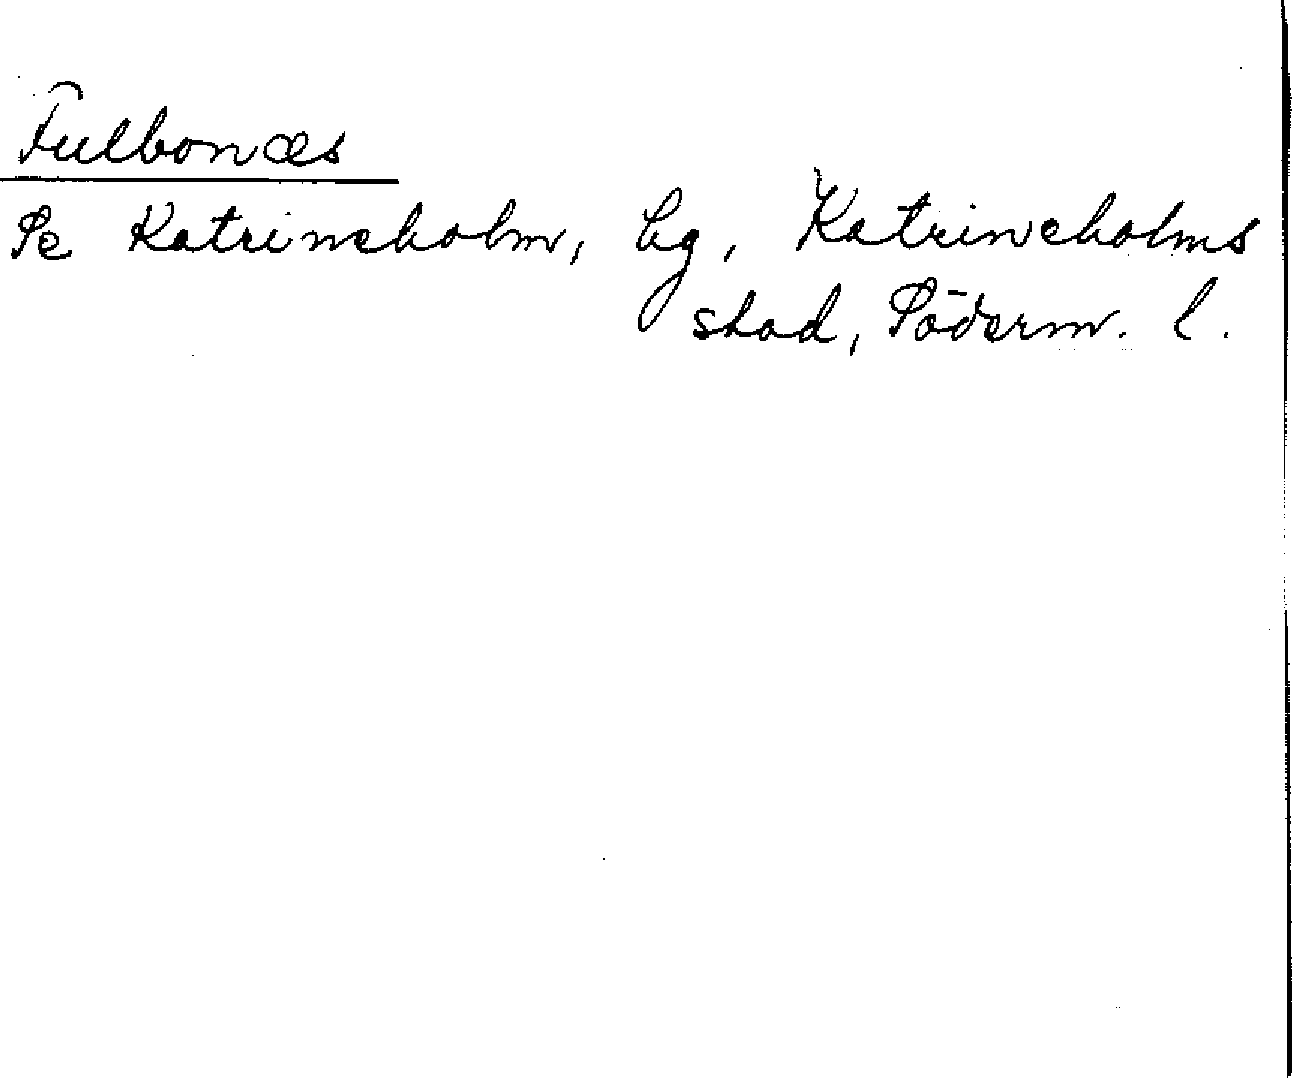 Fulbonæs
Se Katrineholm, hg, Katrineholms
stad, Söderm. l.